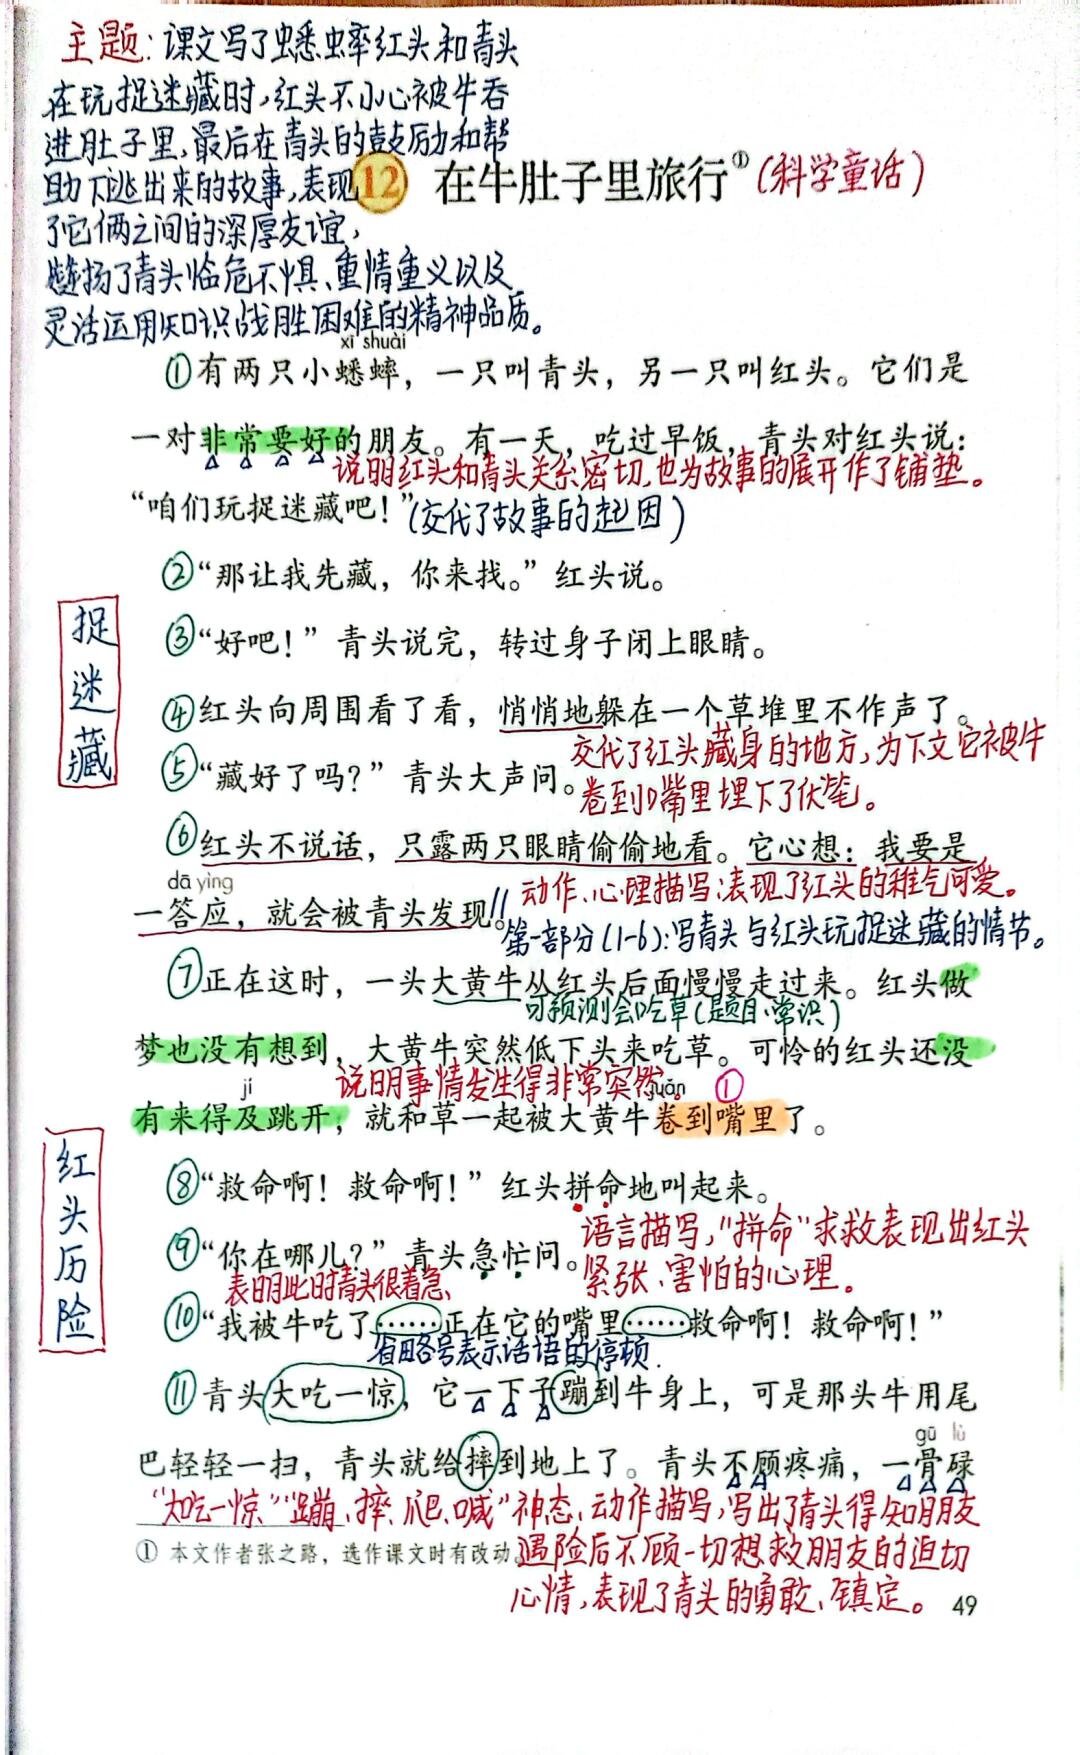 主题:课文写了蟋蟀红头和青头
在玩捉迷藏时,红头不小心被牛吞
进肚子里,最后在青头的鼓励和帮
助下逃出来的故事,表现
了它俩之间的深厚友谊,
赞扬了青头临危不惧、重情重义以及
灵活运用知识战胜困难的精神品质。
12 在牛肚子里旅行①(科学童话)
xī shuài
①有两只小蟋蟀，一只叫青头，另一只叫红头。它们是
一对非常要好的朋友。有一天，吃过早饭，青头对红头说：
说明红头和青头关系密切,也为故事的展开作了铺垫。
“咱们玩捉迷藏吧！”(交代了故事的起因)
②“那让我先藏，你来找。”红头说。
捉迷藏
③“好吧！”青头说完，转过身子闭上眼睛。
④红头向周围看了看，悄悄地躲在一个草堆里不作声了。
交代了红头藏身的地方,为下文它被牛
⑤“藏好了吗？”青头大声问。
卷到嘴里埋下了伏笔。
⑥红头不说话，只露两只眼睛偷偷地看。它心想：我要是
dā yìng
动作、心理描写:表现了红头的稚气可爱。
一答应，就会被青头发现。//
第一部分(1-6):写青头与红头玩捉迷藏的情节。
⑦正在这时，一头大黄牛从红头后面慢慢走过来。红头做
可预测会吃草(题目、常识)
梦也没有想到，大黄牛突然低下头来吃草。可怜的红头还没
说明事情发生得非常突然。
jí juǎn ①
有来得及跳开，就和草一起被大黄牛卷到嘴里了。
红头历险
⑧“救命啊！救命啊！”红头拼命地叫起来。
语言描写,“拼命”求救表现出红头
⑨“你在哪儿？”青头急忙问。
紧张、害怕的心理。
表明此时青头很着急、
⑩“我被牛吃了……正在它的嘴里……救命啊！救命啊！”
省略号表示话语的停顿.
⑪青头大吃一惊，它一下子蹦到牛身上，可是那头牛用尾
gū lù
巴轻轻一扫，青头就给摔到地上了。青头不顾疼痛，一骨碌
“大吃一惊”“蹦、摔、爬、喊”神态、动作描写,写出了青头得知朋友
① 本文作者张之路，选作课文时有改动。
遇险后不顾一切想救朋友的迫切
心情,表现了青头的勇敢、镇定。
49